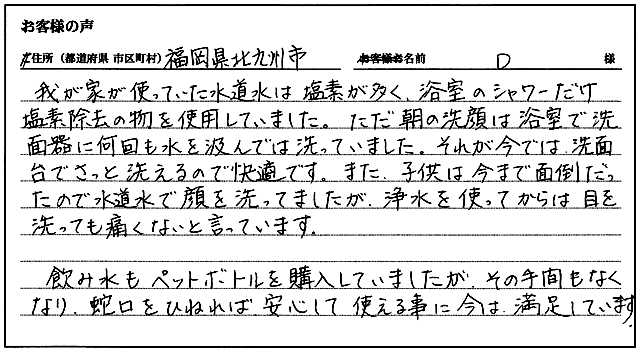 お客様の声
住所（都道府県 市区町村）福岡県北九州市 お客様お名前 D 様
我が家が使っていた水道水は塩素が多く、浴室のシャワーだけ
塩素除去の物を使用していました。ただ朝の洗顔は浴室で洗
面器に何回も水を汲んでは洗っていました。それが今では洗面
台でさっと洗えるので快適です。また、子供は今まで面倒だっ
たので水道水で顔を洗ってましたが、浄水を使ってからは目を
洗っても痛くないと言っています。
飲み水もペットボトルを購入していましたが、その手間もなく
なり、蛇口をひねれば安心して使える事に今は、満足しています。